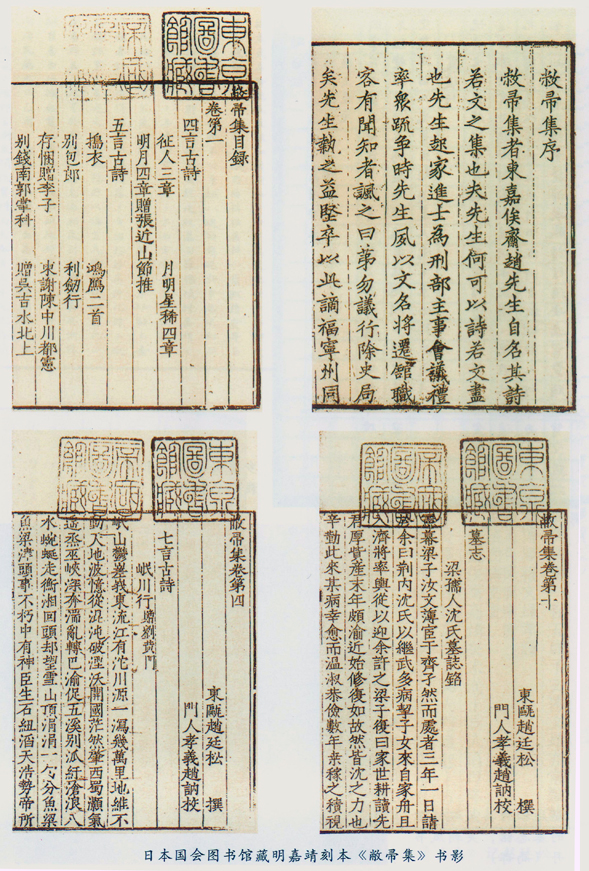 敝帚集序
敝帚集者東嘉俟齋趙先生自名其詩
若文之集也夫先生何可以詩若文盡
也先生起家進士為刑部主事會議禮
率眾䟽爭時先生夙以文名將遷舘職
容有聞知者諷之曰第勿議行除史局
矣先生執之益堅卒以此謫福寧州同
東京
圖書
館藏
敝帚集目錄
卷第一
四言古詩
征人三章 月明星稀四章
明月四章贈張近山節推
五言古詩
擣衣 鴻鴈二首
別包郎 利劒行
存悃贈李子 柬謝陳中川都憲
別錢南郭掌科 贈吳吉水北上
東京
圖書
館藏
敝帚集卷第十
東甌趙廷松 撰
門人孝義趙訥校
墓志
梁孺人沈氏墓誌銘
靈幕梁子汝文薄臣于齊孑然而處者三年一日請
余曰荆內沈氏以繼武多病挈子女來自家舟且
濟將率輿從以迎余許之梁子復曰家世耕讀先
君厚貲產末年頗渝近始修復如故然皆沈之力也
辛勤此來其病幸愈而溫淑恭儉數年來稼之積視
東京
圖書
館藏
敝帚集卷第四
東甌趙廷松 撰
門人孝義趙訥校
七言古詩
岷川行贈劉黄門
岷山鬱嵂我東流江有沱川源一瀉幾萬里地維不
動天地波憶從混沌破溼沃開國茫然肇西蜀灝氣
遥烝巫峽深奔湍亂轉巴渝促五溪别派紅滄浪八
水蜿蜒走衡湘回頭却望雪山頂涓涓一勺分魚梁
魚梁津頭事不朽中有神臣生石紐滔天浩勢帝所
日本国会图书馆藏明嘉靖刻本《敝帚集》书影